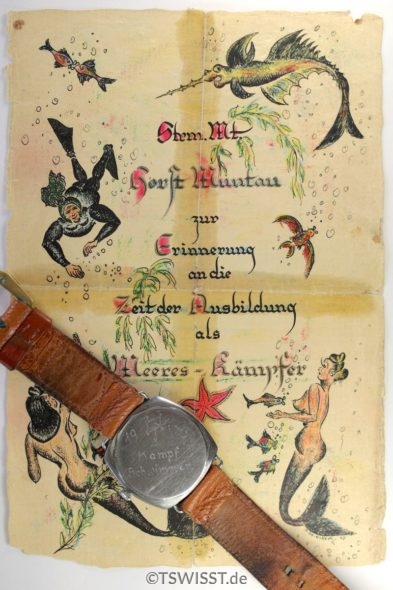 Stem. Mt.
Horst Muntau
zur
Erinnerung
an die
Zeit der Ausbildung
als
Meeres-Kämpfer
19
Kampf
Schwimmer
©TSWISST.de